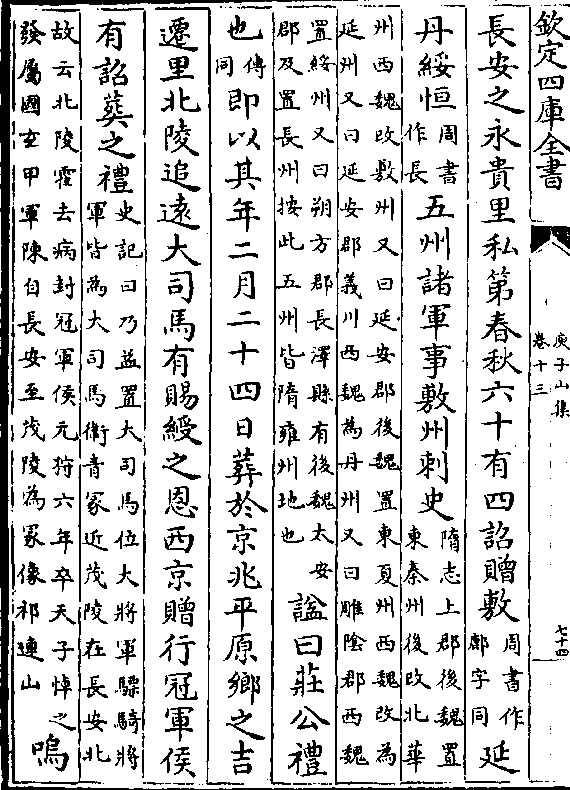 欽定四庫全書
庚子山集
卷十三
七十四
長安之永貴里私第春秋六十有四詔贈敷
周書作
鄜字同
延
丹綏恒
周書
作長
五州諸軍事敷州刺史
隋志上郡後魏置
東秦州後改北華
州西魏改敷州又曰延安郡後魏置東夏州西魏改為
延州又曰延安郡義川西魏為丹州又曰雕陰郡西魏
置綏州又曰朔方郡長澤縣有後魏太安
郡及置長州按此五州皆隋雍州地也
諡曰莊公禮
也
傳
同
即以其年二月二十四日葬於京兆平原鄉之吉
遷里北陵追遠大司馬有賜綬之恩西京贈行冠軍侯
有詔葬之禮
史記曰乃益置大司馬位大將軍驃騎將
軍皆為大司馬衛青冢近茂陵在長安北
故云北陵霍去病封冠軍侯元狩六年卒天子悼之
發屬國玄甲軍陳自長安至茂陵為冢像祁連山
嗚